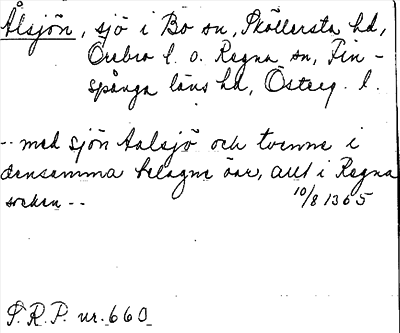 Ålsjön, sjö i Bo sn, Sköllersta hd,
Örebro l. o. Regna sn, Fin-
spånga läns hd, Österg. l.
-- med sjön Aalsjö och tvenne i
densamma belagne öar, allt i Regna
socken -- 10/8 1365
S.R.P. nr. 660